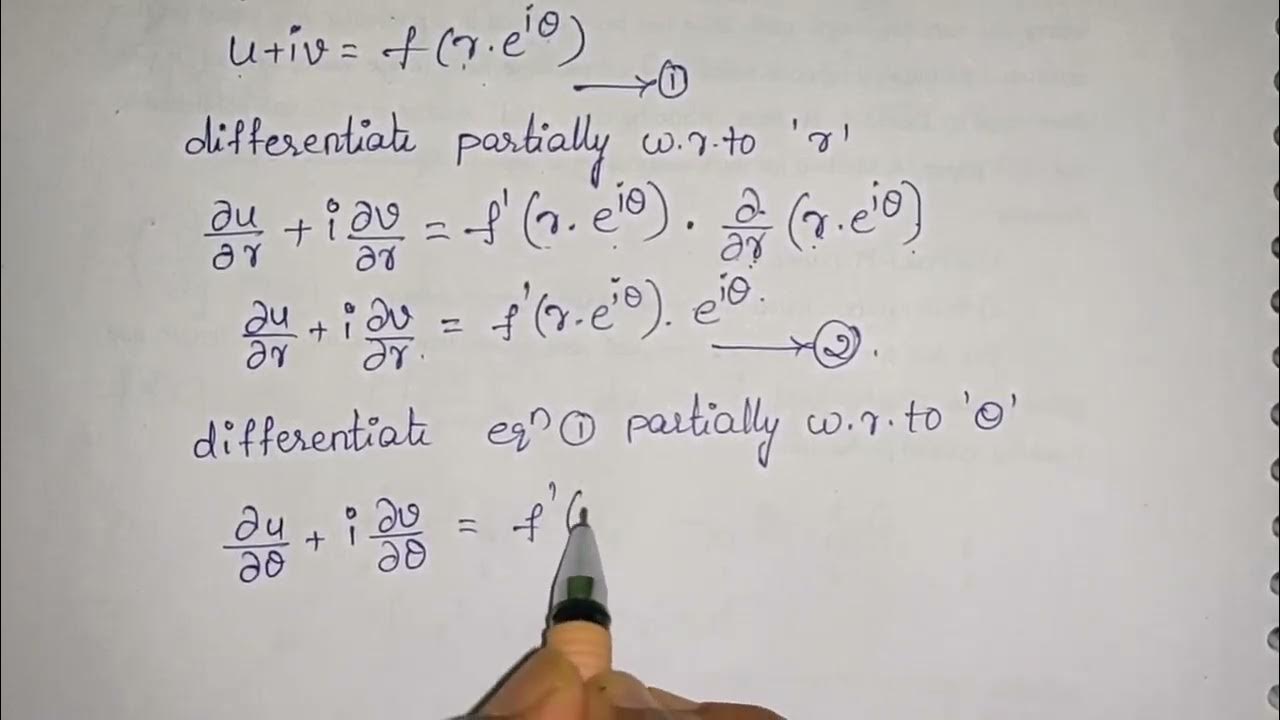 u+iv = f(r.e^{iθ}) → ①
differentiate partially w.r.to 'r'
∂u/∂r + i ∂v/∂r = f'(r.e^{iθ}) . ∂/∂r (r.e^{iθ})
∂u/∂r + i ∂v/∂r. = f'(r.e^{iθ}). e^{iθ}. → ②.
differentiate eqⁿ ① partially w.r.to 'θ'
∂u/∂θ + i ∂v/∂θ = f'(